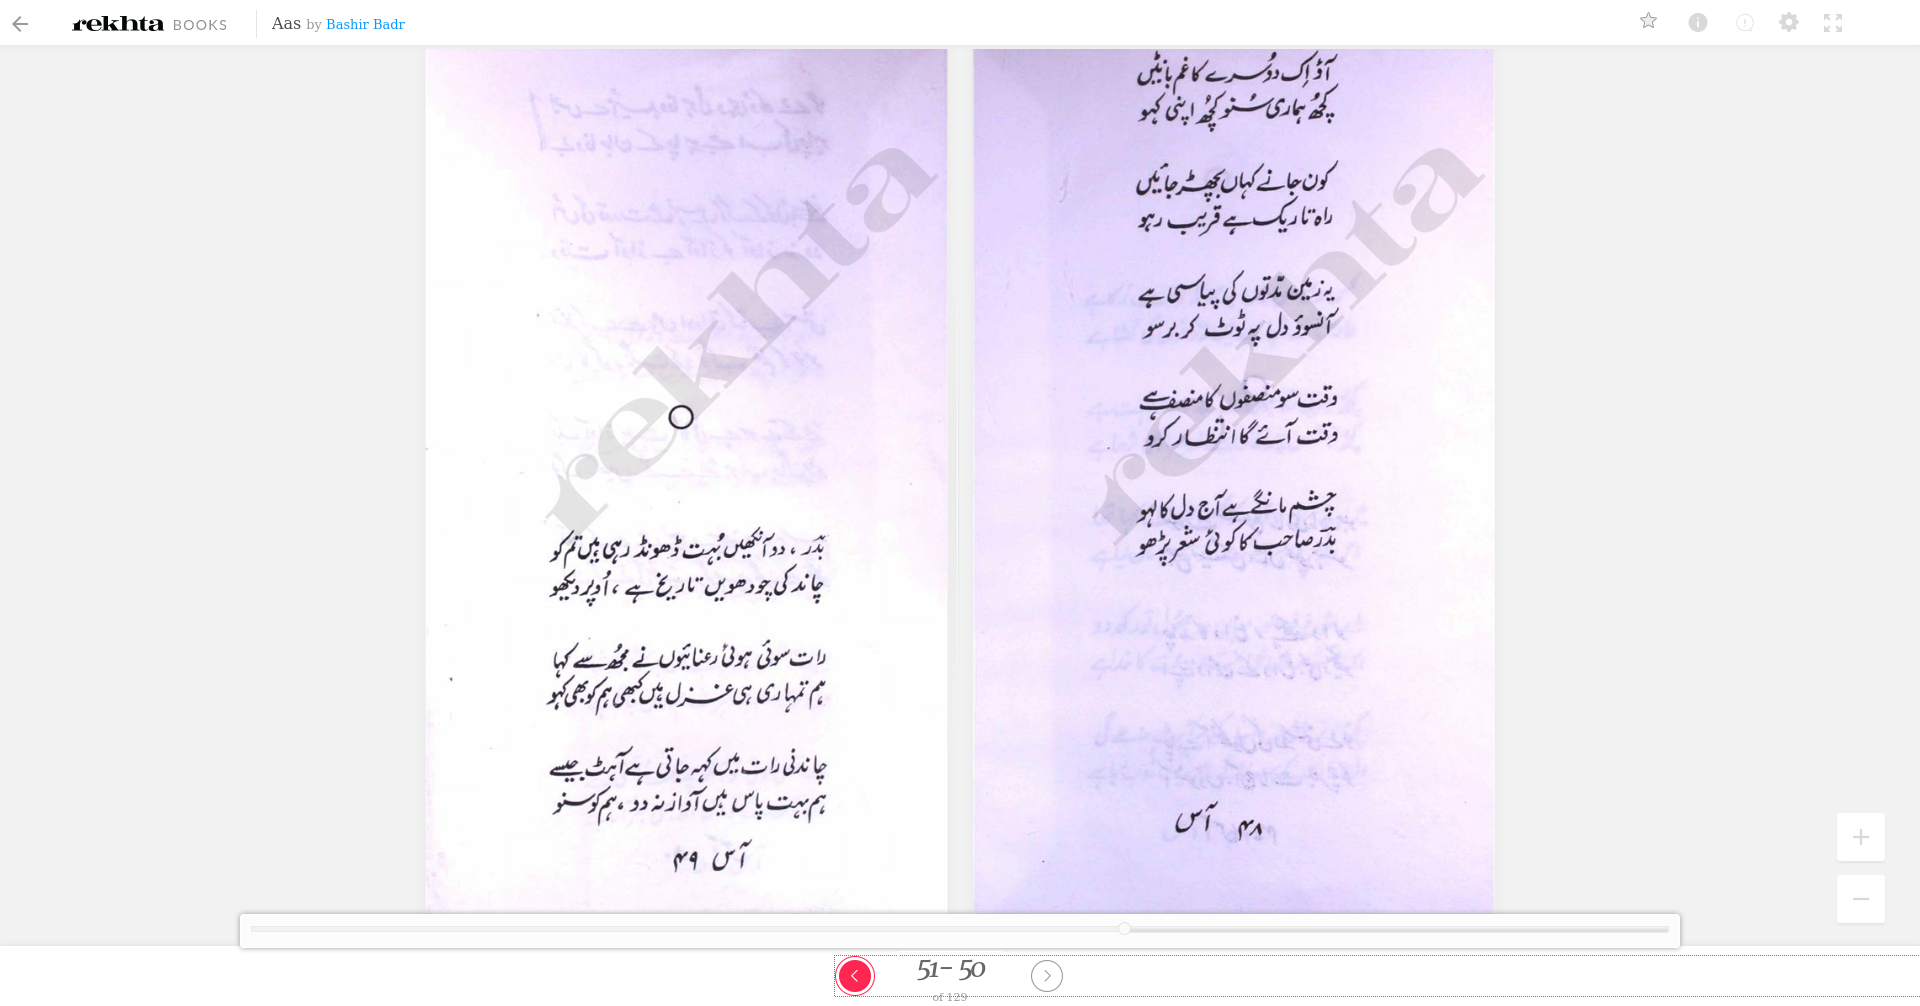 rekhta BOOKS Aas by Bashir Badr
آؤ اِک دوُسرے کا غم بانٹیں
کچھُ ہماری سُنو کچھُ اپنی کہو
کون جانے کہاں بچھڑ جائیں
راہ تاریک ہے قریب رہو
یہ زمین مدّتوں کی پیاسی ہے
آنسوؤ دل پہ ٹوٹ کر برسو
وقت سو منصفوں کا منصف ہے
وقت آئے گا انتظار کرو
چشم مانگے ہے آج دل کا لہو
بدرؔ صاحب کا کوئی شعر پڑھو
۴۸ آس
rekhta
بدرؔ ، دو آنکھیں بُہت ڈھونڈ رہی ہیں تم کو
چاند کی چودھویں تاریخ ہے ، اُوپر دیکھو
رات سوئی ہوئی رعنائیوں نے مجھُ سے کہا
ہم تمہاری ہی غزل ہیں کبھی ہم کو بھی کہو
چاندنی رات میں کہہ جاتی ہے آہٹ جیسے
ہم بہت پاس ہیں آواز نہ دو ، ہم کو سنو
آس ۴۹
rekhta
51- 50
of 129